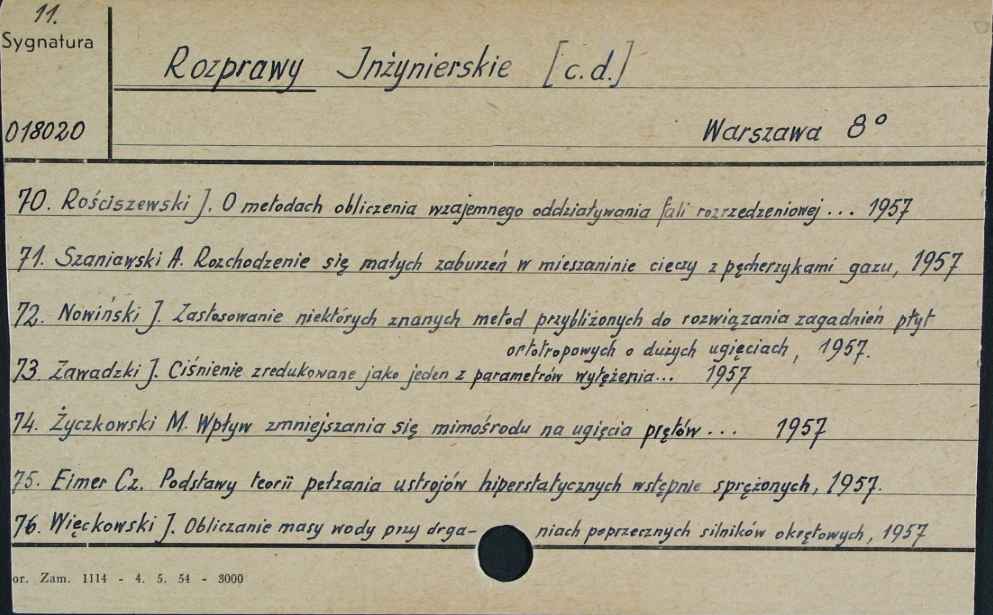 11.
Sygnatura
Rozprawy Inżynierskie [c.d.]
018020
Warszawa 8°
70. Rościszewski J. O metodach obliczenia wzajemnego oddziaływania fali rozrzedzeniowej... 1957
71. Szaniawski A. Rozchodzenie się małych zaburzeń w mieszaninie cieczy z pęcherzykami gazu, 1957
72. Nowiński J. Zastosowanie niektórych znanych metod przybliżonych do rozwiązania zagadnień płyt
ortotropowych o dużych ugięciach, 1957.
73 Zawadzki J. Ciśnienie zredukowane jako jeden z parametrów wytężenia... 1957
74. Życzkowski M. Wpływ zmniejszania się mimośrodu na ugięcia prętów... 1957
75. Eimer Cz. Podstawy teorii pełzania ustrojów hiperstatycznych wstępnie sprężonych, 1957.
76. Więckowski J. Obliczanie masy wody przy drga- niach poprzecznych silników okrętowych, 1957
or. Zam. 1114 - 4. 5. 54 - 3000